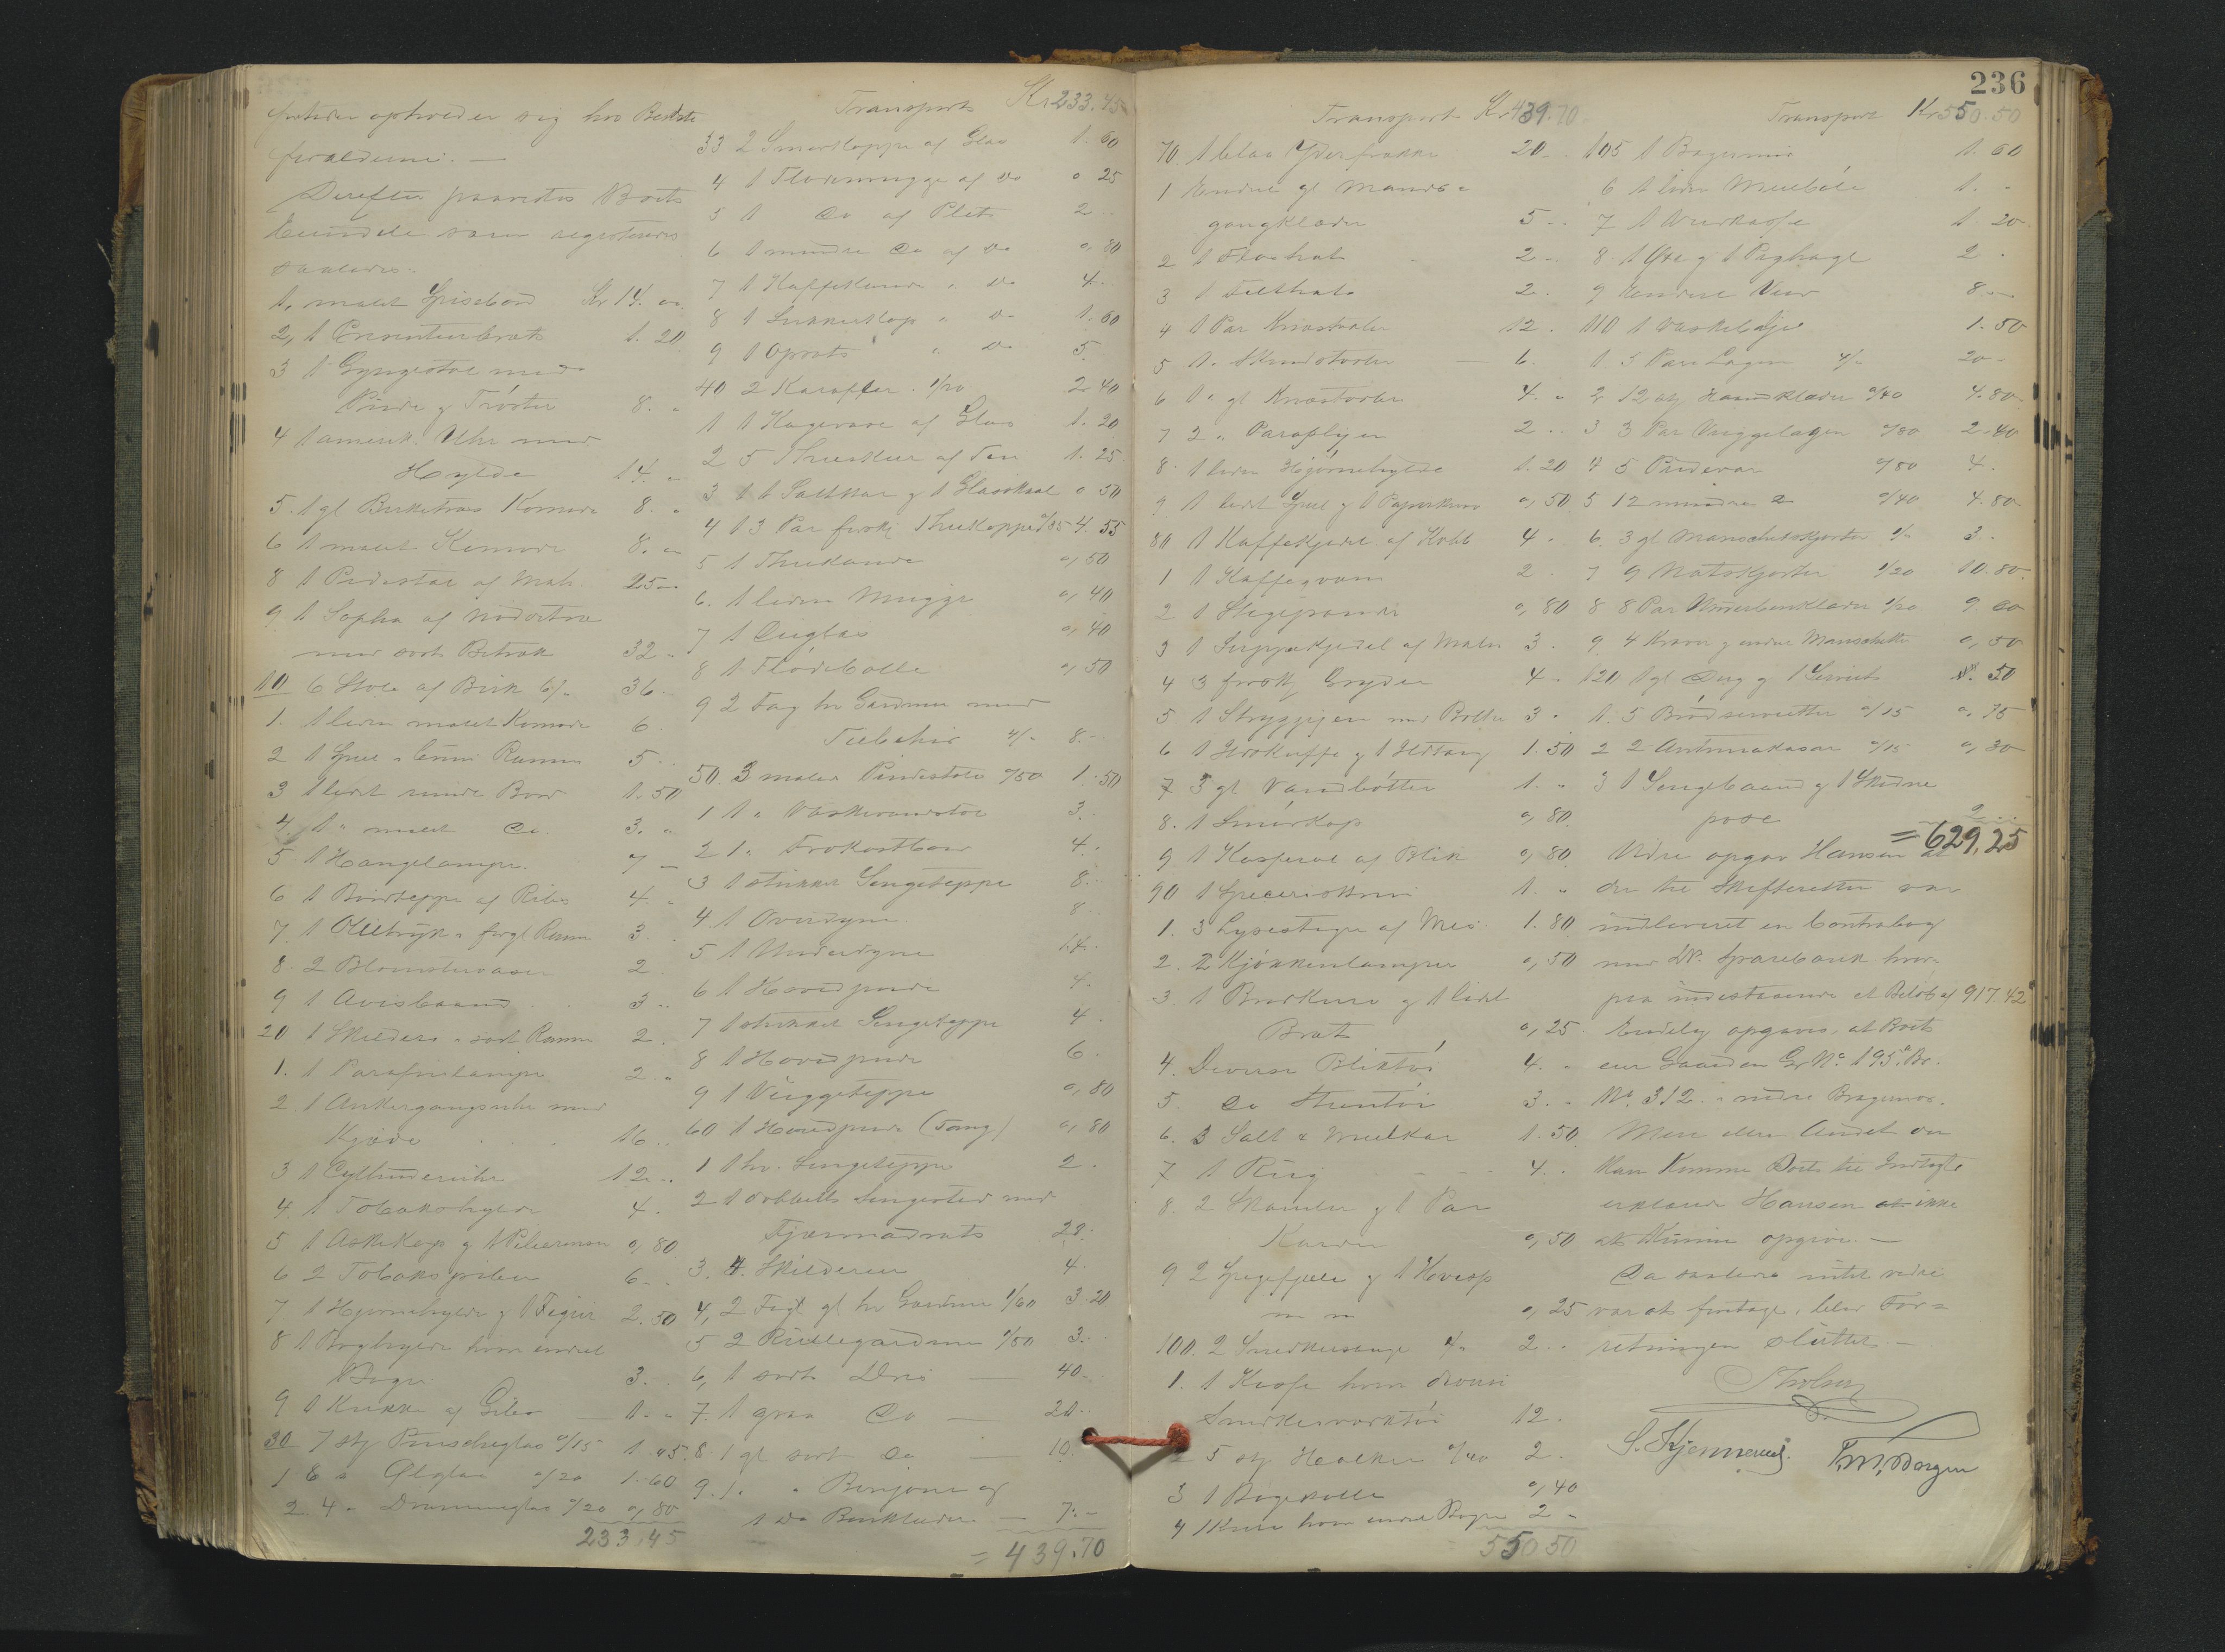 opholder sig hos Bedste
forældrene. —
Derefter paavistes Boets
Eiendele som registreredes
saaledes:
1. malet Spisebord Kr 14. "
2, 1 Presenteerbrett 1. 20
3 1 Gyngestol med
Pude og 8. "
4 1 amerik. Uhr med
Hylde 14. "
5. 1 gl Birketræs Komode 8. "
6 1 malet Komode 8. "
8 1 Pidestal af Mah. 25 "
9 1 Sopha af
med sort Betræk 32 "
10 6 Stole af Birk 6/" 36.
1. 1 liden malet Komode 6
2 1 Speil i brun Ramme 5.
3 1 lidet rundt Bord 1. 50
4. 1 " malet Do. 3. "
5. 1 Hængelampe. 7 —
6 1 Bordteppe af Ribs 4. "
7. 1 Olietryk i forgl Ramme 3.
8 2 Blomstervaser 2
9 1 Avisbaand 3 ..
20 1 Skilderi i sort Ramme 2.
1. 1 Parafinlampe 2 "
2. 1 Ankergangsuhr med
Kjæde 16 ..
3 1 Cylinderuhr 12 ..
4. 1 Tobakshylde 4.
5 1 Askekop og 1 0, 80
6 2 Tobakspiber 6 ..
7 1 Hjørnehylde og 1 Figur 2. 50
8 1 Boghylde hvor endel
Bøger 3. .
9 1 Krukke af Gibs — 1. "
30 7 stk Punscheglas a/15 1. 05
1 8 " Ølglas a/20 1. 60
2 4 " Dramme­glas a/20 0, 80
233,45
Transport Kr 233.45
33 2 Smørkopper af Glas 1. 60
4 1 Flødemugge af Do 0 25
5 1 Do af Plet 2
6 1 mindre Do af Do 0, 80
7 1 Kaffekande " Do 4.
8 1 Sukkerkop " Do 1. 60
9 1 Opsats " Do 5.
40 2 Karafler 1/20 2. 40
1 1 Kagevase af Glas 1. 20
2 5 Theskeer af Tin 1. 25
3 1 Saltkar og 1 Glasskaal 0 50
4 13 Par forskj Thekopper a/35 4. 55
5 1 Thekande 0, 50
6. 1 liden Mugge 0, 40
7 1 Ølglas 0, 40
8 1 Flødebolle 0, 50
9 2 Fag hv Gardiner med
Tilbehør 4/" 8. —
50. 3 malede Pindestole a/50 1. 50
1 1 " Vaskevandstol 3.
2 1 " Frokostbord 4.
3 1 strikket Sengeteppe 8.
4. 1 Overdyne 8
5 1 Underdyne 14.
6 1 Hovedpude 4.
7 1 strikket Sengeteppe 4.
8 1 Hovedpude 6.
9 1 Vuggeteppe 0, 80
60 1 Hovedpude (Tang) 0, 80
1 1 hv. Sengeteppe 2.
2 1 dobbelt Sengested med
Fjærmadrats 28.
3. 4. Skilderier 4.
4, 2 Fag gl hv Gardiner 1/60 3 20
5 2 Rullegardiner 1/50 3.
6, 1 sort Dres — 40
7. 1 graa Do — 20
8 1 gl sort Do — 10.
9. 1 " og
1 Do Benklæder — 7. —
= 439.70
236
Transport Kr 439.70
70. 1 blaa Yderfrakke 20 ..
1 Endel gl Mands
gangklæder 5 ..
2 1 Floshat 2 ..
3 1 Filthat 2.
4 1 Par Knæstøvler 12.
5 1 " Skindstøvler — 6.
6 1 " gl Knæstøvler 4. "
7 2 " Paraplyer 2 ..
8. 1 liden Hjørnehylde 1. 20
9 1 lidet Speil og 1 Papirkurv 0, 50
80 1 Kaffekjedel af Kobb 4 "
1 1 Kaffeqværn 2
2 1 Stegepande 0, 80
3 1 Suppekjedel af Malm 3.
4 3 forskj Gryder 4.
5 1 Strygejern med Bolte 3.
6 1 Ildskuffe og 1 Ildtang 1. 50
7 3 gl Vandbøtter 1. "
8. 1 Smørkop 0, 80
9 1 Kasserol af Blik 0, 80
90 1 Speceriskrin 1. "
1. 3 Lysestager af Mes. 1. 80
2. 2 Kjøkkenlamper 0, 50
3. 1 Brødkurv og 1 lidet
Bræt 0, 25
4. Diverse Bliktøi 4. "
5. Do Stentøi 3. "
6. 3 Salt & Melkar 1. 50
7 1 Rug — 4 ..
8. 2 og 1 Par
Karder 0, 50
9 2 Spegefjæle og 1
m m 0, 25
100. 2 1/" 2 ..
1. 1 Kasse hvor diverse
Snedkerværktøi 12.
2 5 stk a/40 2.
3 1 Bagebolle 0, 40
4 1 Kasse hvor endel Bøger 2 "
550 50
Transport Kr 550.50
105 1 1. 60
6 1 liden Melbøle 1. "
7 1 Vedkasse 1. 20
8 1 Øxe og 1 2.
9 Endel Ved 8. —
110 1 Vaskebalje 1. 50
1 5 Par Lagen 4/" 20 "
2 12 stk Haandklæder a/40 4. 80
3 3 Par Vuggelagen a/80 2. 40
4 5 Pudevar a/80 4.
5 12 mindre Do a/40 4. 80
6. 3 gl Manschetskjorter 1/" 3.
7 9 Natskjorter 1/20 10. 80
8 8 Par Underbenklæder 1/20 9. 60
9. 4 Kraver og endel Manschetter 0, 50
120 1 gl Dug og 1 Serviet 50
1. 5 Brødservietter a/15 0, 75
2 2 Antimakasar a/15 0, 30
3 1 Sengebaand og 1
pose 2 ..
= 629,25
Videre opgav Hansen at
der til Skifteretten var
indleveret en Contrabog
med Dr. Sparebank hvor-
paa indestaaende et Beløb af 917.42
Endelig opgaves, at Boet
eier Gaarden Gr. No. 195a Br.
No. 312 i nedre Bragernes.
Mere eller Andet der
kan komme Boet til Indtægt
erklærede Hansen ikke
at kunne opgive. —
Da saaledes intet videre
var at foretage, blev For-
retningen sluttet. —
Tholsen
S. Kjennerud. T. M. Borgen